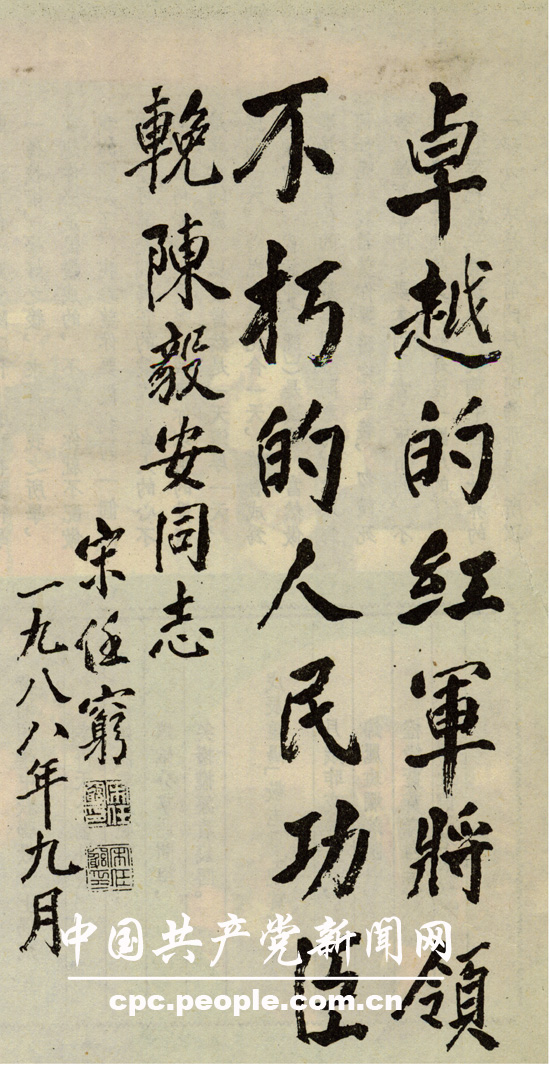 卓越的红軍將領
不朽的人民功臣
輓陳毅安同志
宋任窮
一九八八年九月
中国共产党新闻网
cpc.people.com.cn